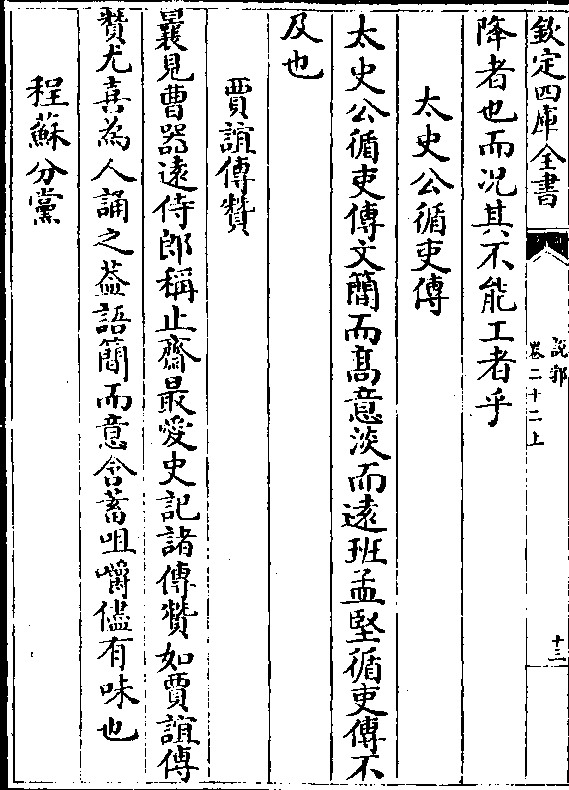 欽定四庫全書
說郛
卷二十二上
十三
降者也而况其不能工者乎
太史公循吏傳
太史公循吏傳文簡而髙意淡而遠班孟堅循吏傳不
及也
賈誼傳贊
曩見曹器逺侍郎稱止齋最愛史記諸傳贊如賈誼傳
贊尤喜為人誦之葢語簡而意含蓄咀嚼儘有味也
程蘇分黨